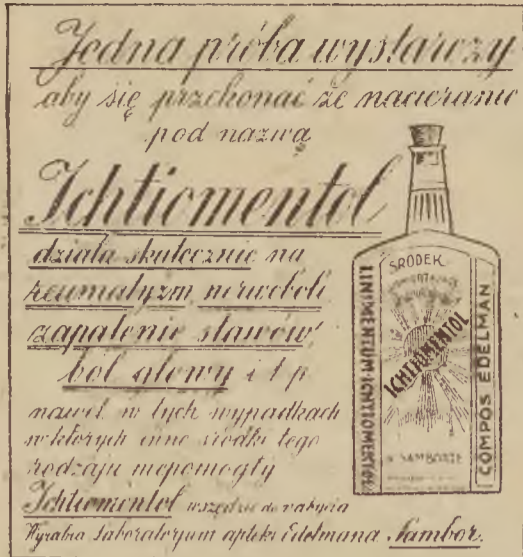 Jedna próba wystarczy
aby się przekonać że nacieranie
pod nazwą
Ichtiomentol
działa skutecznie na
reumatyzm, nerwoból
zapalenie stawów,
ból głowy i t p
nawet w tych wypadkach
w których inne środki tego
rodzaju niepomogły
Ichtiomentol wszędzie do nabycia
Wyrabia Laboratoryum apteki Edelmana Sambor.
ŚRODEK
ICHTIOMENTOL
W SAMBORZE
LINIMENTUM ICHTIOMENTOL
COMPOS EDELMAN